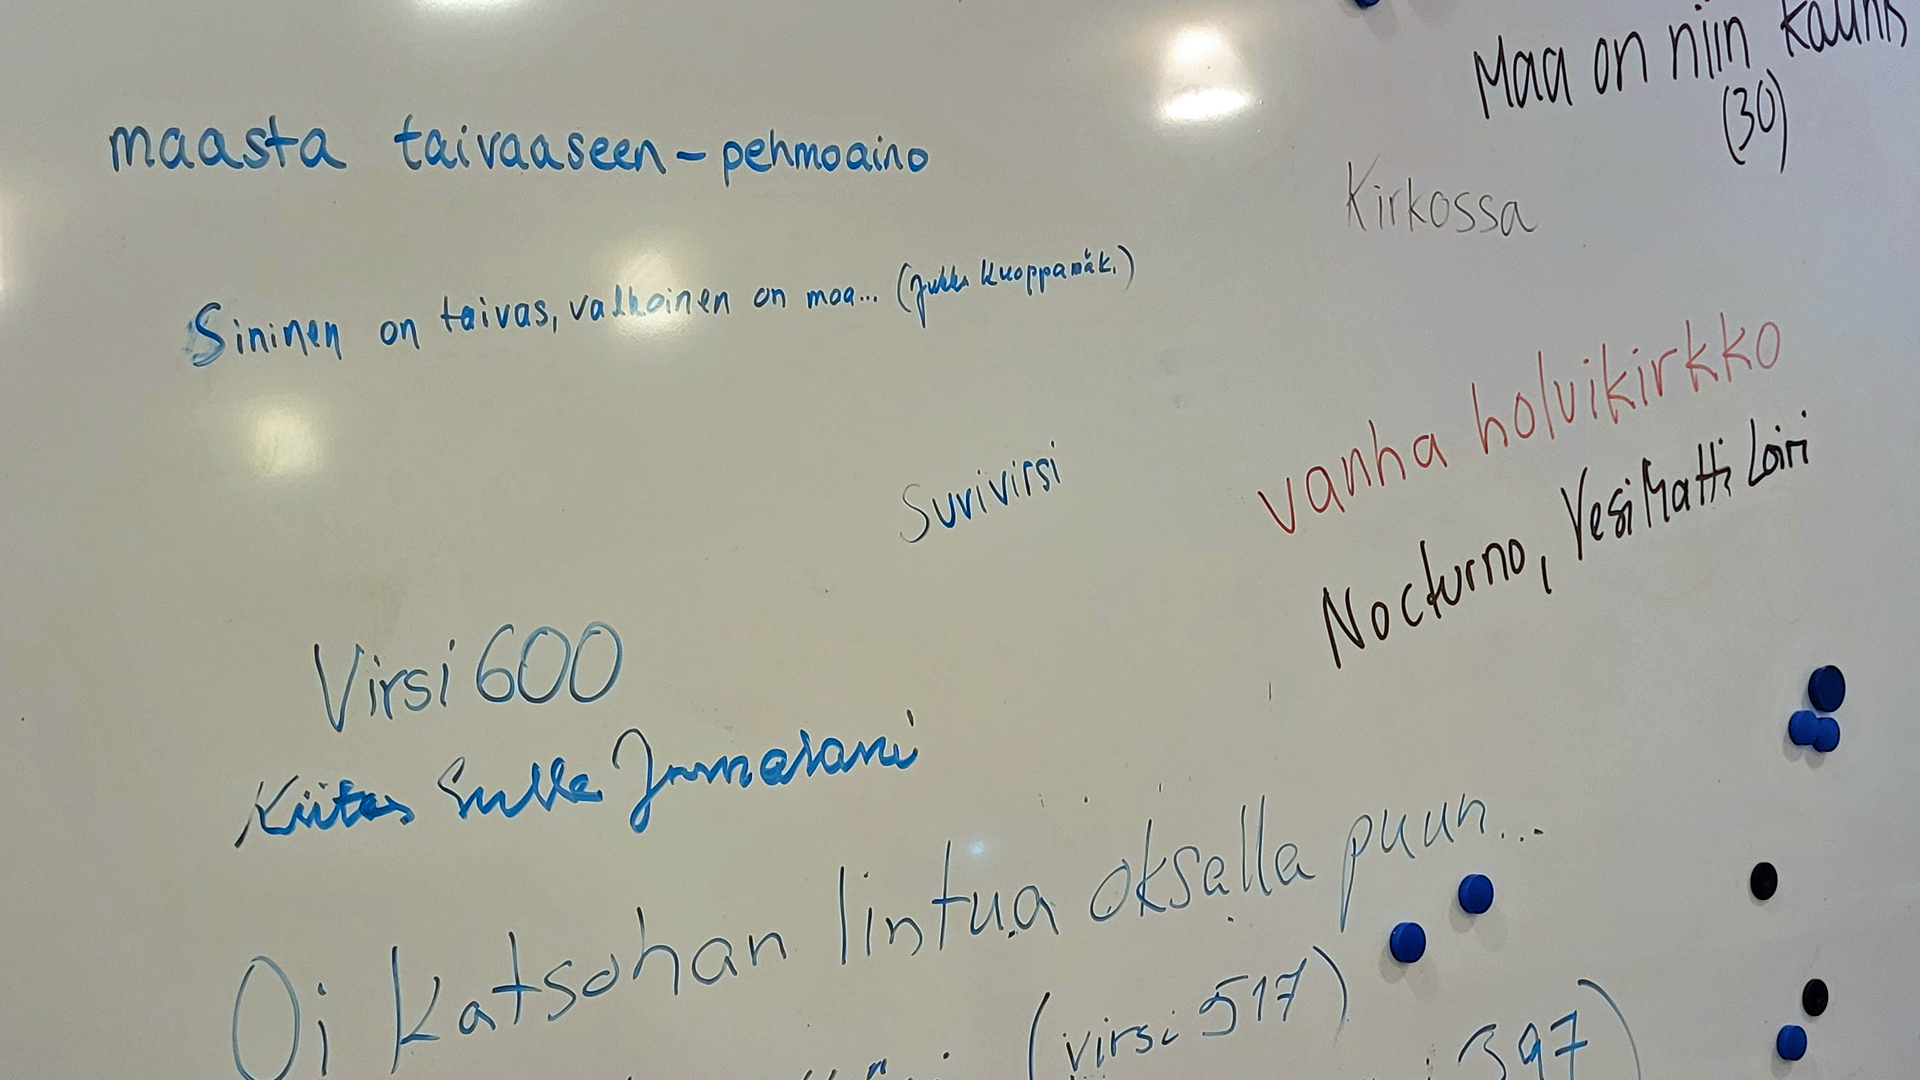 Maa on niin kaunis
(30)
maasta taivaaseen - pehmoaino
Kirkossa
Sininen on taivas, valkoinen on maa... (Jukka Kuoppamäk.)
vanha holvikirkko
Suvivirsi
Nocturno, Vesi Matti Loiri
Virsi 600
Kiitos Sulle Jumalani
Oi katsohan lintua oksalla puun...
(virsi 517)
397)